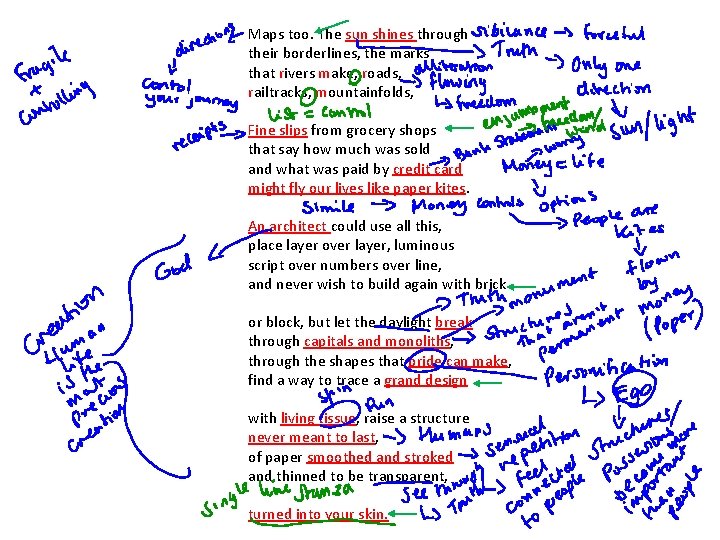 directions
Maps too. The sun shines through sibilance → forceful
their borderlines, the marks → Truth
that rivers make, roads, alliteration → flowing → Only one direction
railtracks, mountainfolds, ↳ freedom
Fragile
+
controlling
Control
your journey
list = control
enjambment → freedom/
Sun/light
receipts
Fine slips from grocery shops
that say how much was sold
Bank statement → worry
and what was paid by credit card
Money = life
might fly our lives like paper kites.
Simile → Money controls options
→ People are
kites
↓
flown
by
money
(paper)
An architect could use all this,
God
place layer over layer, luminous
script over numbers over line,
and never wish to build again with brick
Truth
monument
Creation
Human
life
is the
most
precious
creation
or block, but let the daylight break
→ structures
that aren't
permanent
through capitals and monoliths,
through the shapes that pride can make,
Personification
↳ Ego
find a way to trace a grand design
skin
with living tissue, raise a structure
never meant to last, → Humans
of paper smoothed and stroked → sensual
repetition
→ feel
connected
to people
Structures/
Possessions
become more
important
than
people
and thinned to be transparent,
See through
↳ Truth
Single line stanza
turned into your skin.